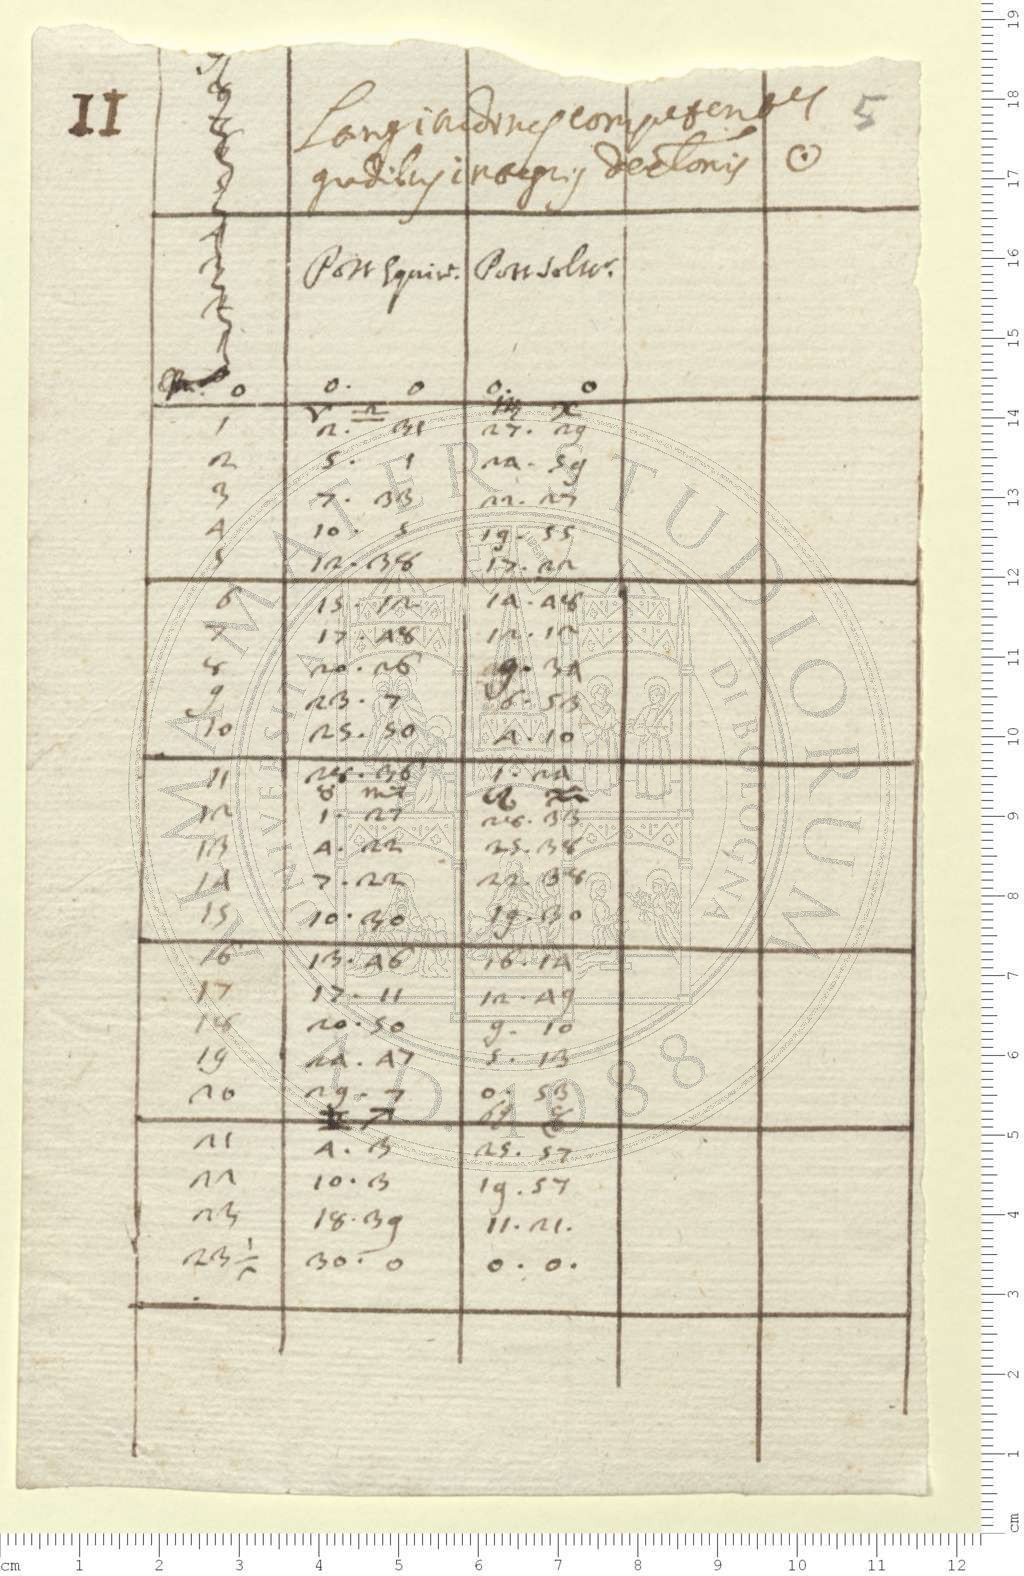 II
5
Longitudines competentes
gradibus integris declionis ☉
Post Equin. Post Solst.
0 0. 0 0. 0
♈ ♎ ♍ ♓
1 2. 31 27. 29
2 5. 1 24. 59
3 7. 33 22. 27
4 10. 5 19. 55
5 12. 38 17. 22
6 15. 12 14. 48
7 17. 48 12. 12
8 20. 26 9. 34
9 23. 7 6. 53
10 25. 50 4. 10
11 28. 36 1. 24
♉ ♏ ♌ ♒
12 1. 27 28. 33
13 4. 22 25. 38
14 7. 22 22. 38
15 10. 30 19. 30
16 13. 46 16. 14
17 17. 11 12. 49
18 20. 50 9. 10
19 24. 47 5. 13
20 29. 7 0. 53
♊ ♐ ♋ ♑
21 4. 3 25. 57
22 10. 3 19. 57
23 18. 39 11. 21.
23 1/2 30. 0 0. 0.
ALMA MATER STUDIORUM
UNIVERSITÀ DI BOLOGNA
A.D. 1088